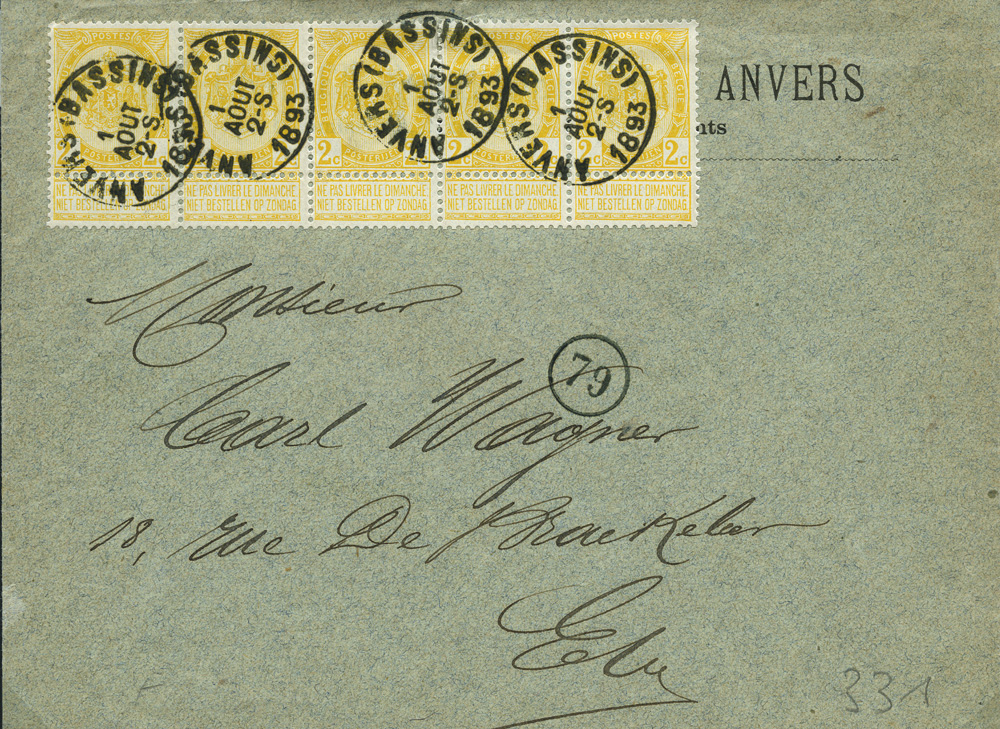 POSTES POSTES POSTES POSTES POSTES
2c 2c 2c 2c 2c
NE PAS LIVRER LE DIMANCHE NE PAS LIVRER LE DIMANCHE NE PAS LIVRER LE DIMANCHE NE PAS LIVRER LE DIMANCHE NE PAS LIVRER LE DIMANCHE
NIET BESTELLEN OP ZONDAG NIET BESTELLEN OP ZONDAG NIET BESTELLEN OP ZONDAG NIET BESTELLEN OP ZONDAG NIET BESTELLEN OP ZONDAG
ANVERS (BASSINS)
1
AOUT
2-S
1893
ANV (BASSINS)
1
AOUT
2-S
1893
ANVERS (BASSINS)
1
AOUT
2-S
1893
ANVERS (BASSINS)
1
AOUT
2-S
1893
ANVERS
nts
Monsieur
79
Carl Wagner
18, rue De Braekeleer
331